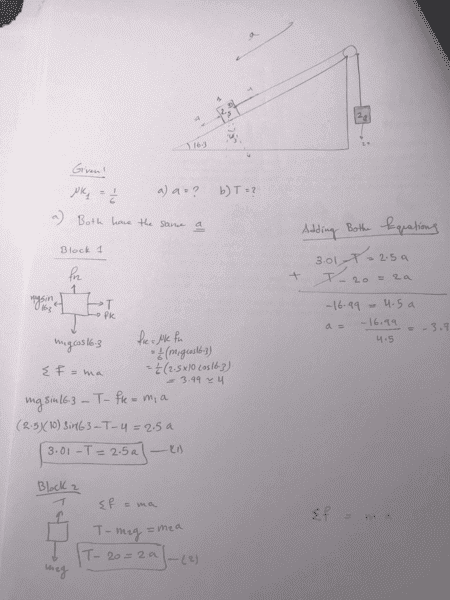 a
16.3
2g
Given!
μK₁ = 1/6   a) a = ?   b) T = ?
a) Both have the same a
Block 1
fn
mgsin16.3
T
fk
m₁gcos16.3
fk = μk fn
= 1/6 (m₁gcos16.3)
= 1/6 (2.5x10 cos16.3)
= 3.99 ≈ 4
ΣF = ma
mgsin16.3 - T - fk = m₁a
(2.5)(10) sin16.3 - T - 4 = 2.5a
3.01 - T = 2.5a —(1)
Block 2
T
m₂g
ΣF = ma
T - m₂g = m₂a
T - 20 = 2a —(2)
Adding Both Equations
3.01 - T = 2.5a
+ T - 20 = 2a
-16.99 = 4.5a
a = -16.99/4.5 = -3.7
ΣF = ma